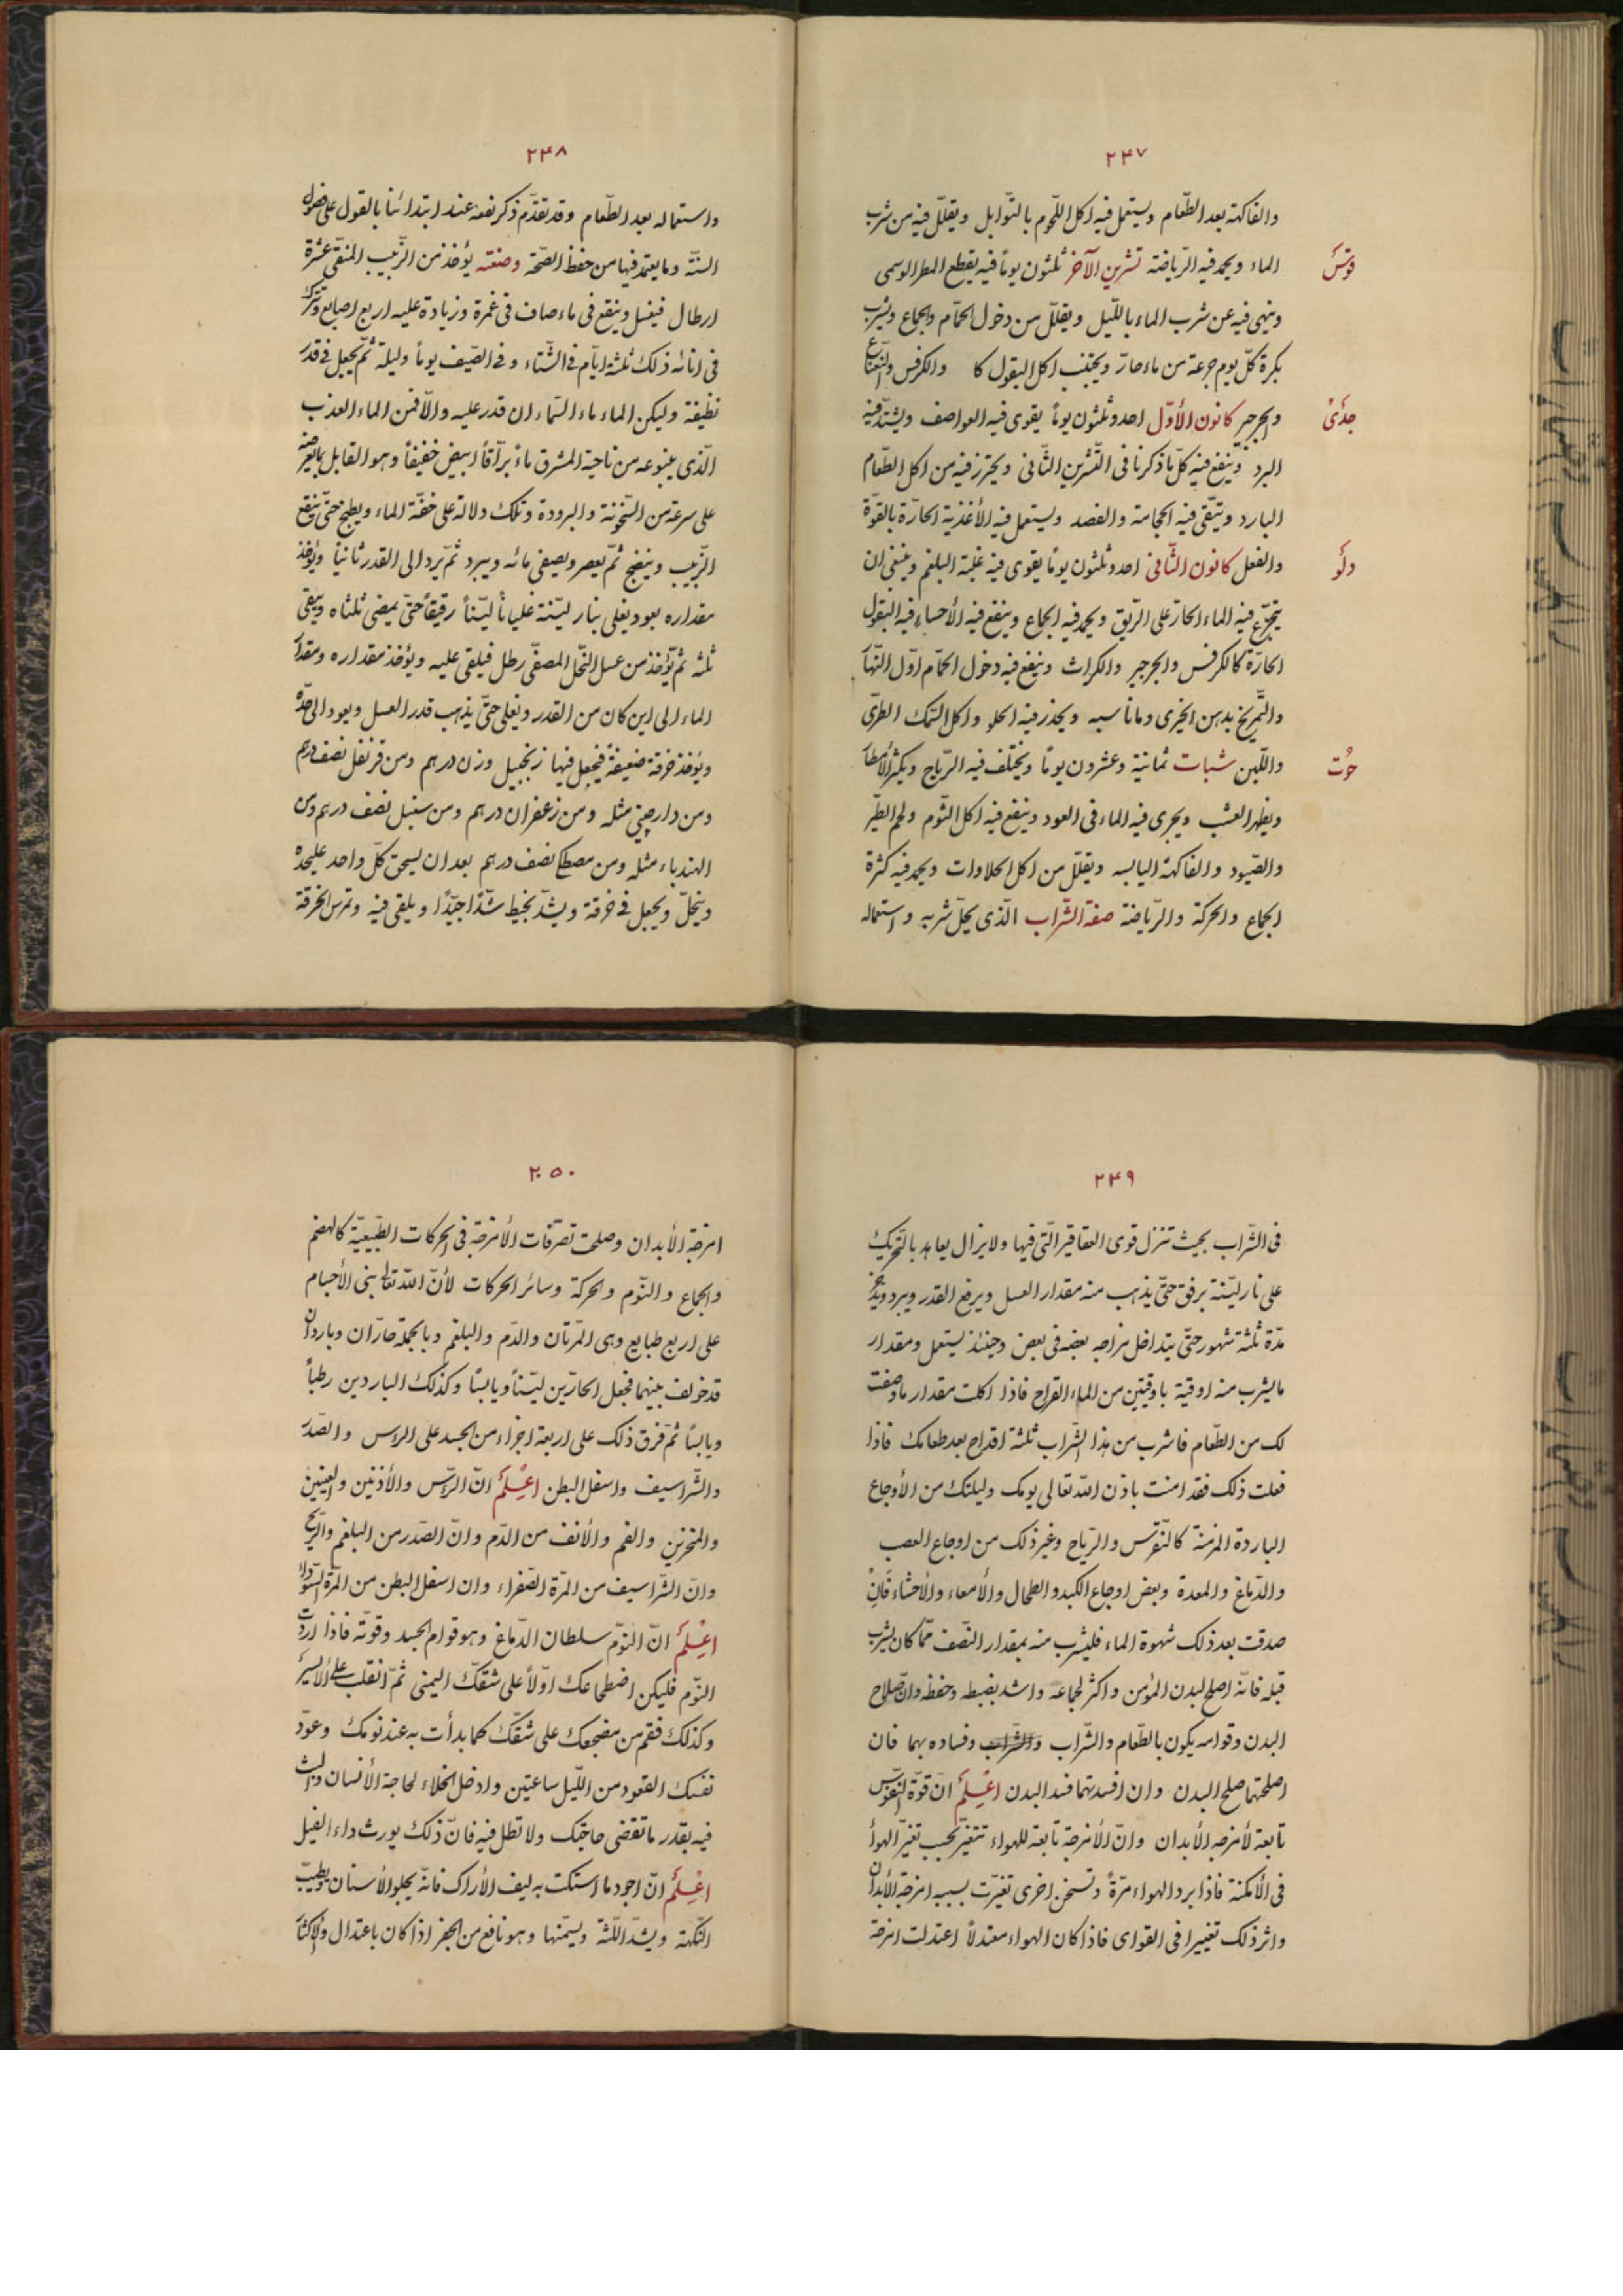 ٢٤٧
والفاكهة بعد الطّعام ويستعمل فيه اكل اللّحوم بالتّوابل ويقلّل فيه من شرب
قوسٌ
الماء ويحمد فيه الرّياضة تشرين الآخر ثلثون يوماً فيه يقطع المطر الوسمى
وينهى فيه عن شرب الماء باللّيل ويقلّل من دخول الحمّام والجماع ويشرب
بكرة كلّ يوم جرعة من ماء حارّ ويجتنب اكل البقول كا والكرفس والنّعناع
جدْىٌ
والجرجير كانون الأوّل احد وثلثون يوماً يقوى فيه العواصف ويشتدّ فيه
البرد وينفع فيه كلّ ما ذكرنا فى التّشرين الثّانى ويحترز فيه من اكل الطّعام
البارد ويتّقى فيه الحجامة والفصد ويستعمل فيه الأغذية الحارّة بالقوّة
دلْو
والفعل كانون الثّانى احد وثلثون يوماً يقوى فيه غلبة البلغم وينبغى ان
يتجرّع فيه الماء الحار على الرّيق ويحمد فيه الجماع وينفع فيه الأحساء فيه البقول
الحارّة كالكرفس والجرجير والكراث وينفع فيه دخول الحمّام اوّل النّهار
والتّمريخ بدهن الخيرى وما ناسبه ويحذر فيه الحلو واكل السّمك الطرىّ
حُوت
واللّبن شباط ثمانية وعشرون يوماً ويختلف فيه الرّياح ويكثر الأمطار
ويظهر العشب ويجرى فيه الماء فى العود وينفع فيه اكل الثّوم ولحم الطّير
والصّيود والفاكهة اليابسه ويقلّل من اكل الحلاوات ويحمد فيه كثرة
الجماع والحركة والرّياضة صفة الشّراب الّذى يحلّ شربه واستعماله
٢٤٨
واستعماله بعد الطّعام وقد تقدّم ذكر نفعه عند ابتدائنا بالقول على فصول
السنّة وما يعتمد فيها من حفظ الصّحّة وصنعته يؤخذ من الزّبيب المنقّى عشرة
ارطال فيغسل وينقع فى ماء صاف فى غمرة وزيادة عليه اربع اصابع ويترك
فى انائه ذلك ثلثة ايّام فى الشّتاء وفى الصّيف يوماً وليلة ثمّ يجعل فى قدر
نظيفة وليكن الماء ماء السّماء ان قدر عليه والّا فمن الماء العذب
الّذى ينبوعه من ناحية المشرق ماءً برّاقاً ابيض خفيفاً وهو القابل لما يعترضه
على سرعة من السّخونة والبرودة وتلك دلالة على خفّة الماء ويطبخ حتّى ينقع
الزّبيب وينضج ثمّ يعصر ويصفى مائه ويبرد ثمّ يردّ الى القدر ثانياً ويؤخذ
مقداره بعود ويغلى بنار ليّنة غلياناً ليّناً رقيقاً حتّى يمضى ثلثاه ويبقى
ثلثه ثمّ يؤخذ من عسل النّحل المصفّى رطل فيلقى عليه ويؤخذ مقداره ومقدار
الماء الى اين كان من القدر ويغلى حتّى يذهب قدر العسل ويعود الى حدّه
ويؤخذ خرقة ضعيفة فيجعل فيها زنجبيل وزن درهم ومن قرنفل نصف درهم
ومن دارچينى مثله ومن زعفران درهم ومن سنبل نصف درهم ومن
الهندباء مثله ومن مصطكى نصف درهم بعد ان يسحق كلّ واحد عليحده
وينخلّ ويجعل فى خرقة ويشدّ بخيط شدّاً جيّداً ويلقى فيه وتمرس الخرقة
٢٤٩
فى الشّراب بحيث تنزل قوى العقاقير الّتى فيها ولا يزال يعاهد بالتّحريك
على نار ليّنة برفق حتّى يذهب منه مقدار العسل ويرفع القدر ويبرد ويؤخذ
مدّة ثلثة شهور حتّى يتداخل مزاجه بعضه فى بعض وحينئذ يستعمل ومقدار
ما يشرب منه اوقية باوقيتين من الماء القراح فاذا اكلت مقدار ما وصفت
لك من الطّعام فاشرب من هذا الشّراب ثلثة اقداح بعد طعامك فاذا
فعلت ذلك فقد امنت باذن اللّه تعالى يومك وليلتك من الأوجاع
الباردة المزمنة كالنّقرس والرّياح وغير ذلك من اوجاع العصب
والدّماغ والمعدة وبعض اوجاع الكبد والطحال والأمعاء والأحشاء فَاِنْ
صدقت بعد ذلك شهوة الماء فليشرب منه بمقدار النّصف ممّا كان يشرب
قبله فانّه اصلح لبدن المؤمن واكثر لجماعه واشد بضبطه وحفظه وانّ صلاح
البدن وقوامه يكون بالطّعام والشّراب والشّراب وفساده بهما فان
اصلحتهما صلح البدن وان افسدتهما فسد البدن اعْلَمْ انّ قوّة النّفوس
تابعة لأمزجه الأبدان وانّ الأمزجة تابعة للهواء تتغيّر بحسب تغيّر الهواء
فى الأمكنة فاذا برد الهواء مرّةً وتسخن اخرى تغيّرت بسببه امزجة الأبدان
واثر ذلك تغييرا فى القواى فاذا كان الهواء معتدلاً اعتدلت امزجة
٢٥٠
امزجة الأبدان وصلحت تصرّفات الأمزجة فى الحركات الطّبيعيّة كالهضم
والجماع والنّوم والحركة وسائر الحركات لأنّ اللّه تعالى بنى الأجسام
على اربع طبايع وهى المرّتان والدّم والبلغم وبالجملة حارّان وباردان
قد خولف بينهما فجعل الحارّين ليّناً ويابساً وكذلك الباردين رطباً
ويابساً ثمّ فرق ذلك على اربعة اجزاء من الجسد على الرّاس والصّدر
والشّراسيف واسفل البطن اعْلَمْ انّ الرّاس والأذنين والعينين
والمنخرين والفم والأنف من الدّم وانّ الصّدر من البلغم والرّيح
وانّ الشّراسيف من المرّة الصّفراء وان اسفل البطن من المرّة السّوداء
اعْلَمْ انّ النّوم سلطان الدّماغ وهو قوام الجسد وقوّته فاذا اردت
النّوم فليكن اضطجاعك اوّلاً على شقّك اليمنى ثمّ انقلب على الأيسر
وكذلك فقم من مضجعك على شقّك كما بدأت به عند نومك وعوّد
نفسك القعود من اللّيل ساعتين وادخل الخلاء لحاجة الأنسان والبث
فيه بقدر ما تقضى حاجتك ولا تطل فيه فانّ ذلك يورث داء الفيل
اعْلَمْ انّ اجود ما استكت به ليف الأراك فانّه يجلو الأسنان ويطيّب
النّكهة ويشدّ اللّثة ويسمّنها وهو نافع من الحفر اذا كان باعتدال والأكثار